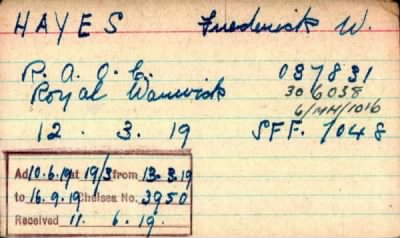 HAYES Frederick W.
R.A.O.C. 087831
Royal Warwick 306038
6/MH/1016
12. 3. 19 SFF. 7048
Ad 10.6.19 at 19/3 from 13.3.19
to 16.9.19 Chelsea No. 3950
Received 11. 6. 19.